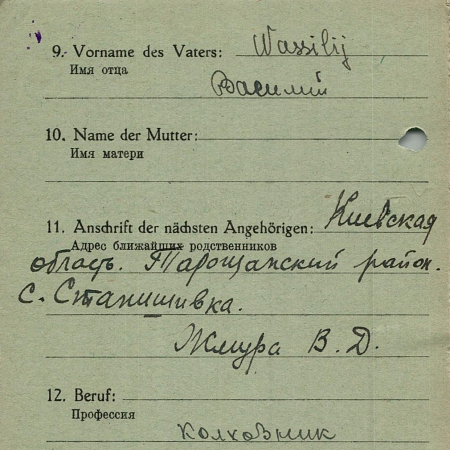 9. Vorname des Vaters: Wassilij
Имя отца
Василий
10. Name der Mutter:
Имя матери
11. Anschrift der nächsten Angehörigen: Киевская
Адрес ближайших родственников
область. Таращанский район.
с. Станишивка.
Жмура В. Д.
12. Beruf:
Профессия
колховник